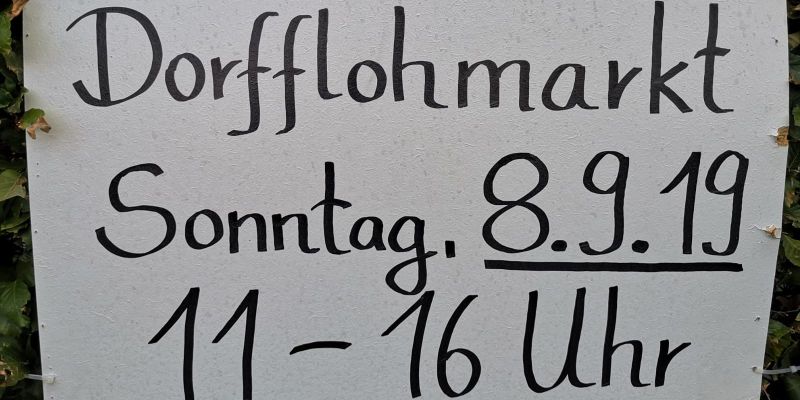 Dorfflohmarkt
Sonntag, 8.9.19
11 - 16 Uhr